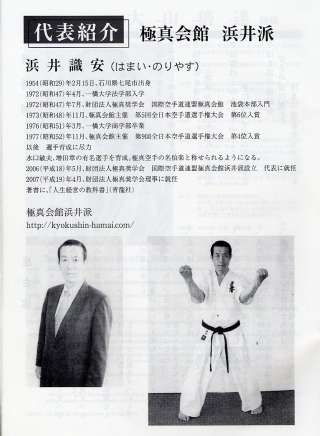 代表紹介 極真会館 浜井派
浜井識安(はまい・のりやす)
1954(昭和29)年2月15日、石川県七尾市出身
1972(昭和47)年4月、一橋大学法学部入学
1972(昭和47)年7月、財団法人極真奨学会 国際空手道連盟極真会館 池袋本部入門
1973(昭和48)年11月、極真会館主催 第5回全日本空手道選手権大会 第6位入賞
1976(昭和51)年3月、一橋大学商学部卒業
1977(昭和52)年11月、極真会館主催 第9回全日本空手道選手権大会 第4位入賞
以後 選手育成に尽力
水口敏夫、増田章の有名選手を育成。極真空手の名伯楽と称せられるようになる。
2006(平成18)年5月、財団法人極真奨学会 国際空手道連盟極真会館浜井派設立 代表に就任
2007(平成19)年4月、財団法人極真奨学会理事に就任
著書に、『人生経営の教科書』(青龍社)
極真会館浜井派
http://kyokushin-hamai.com/